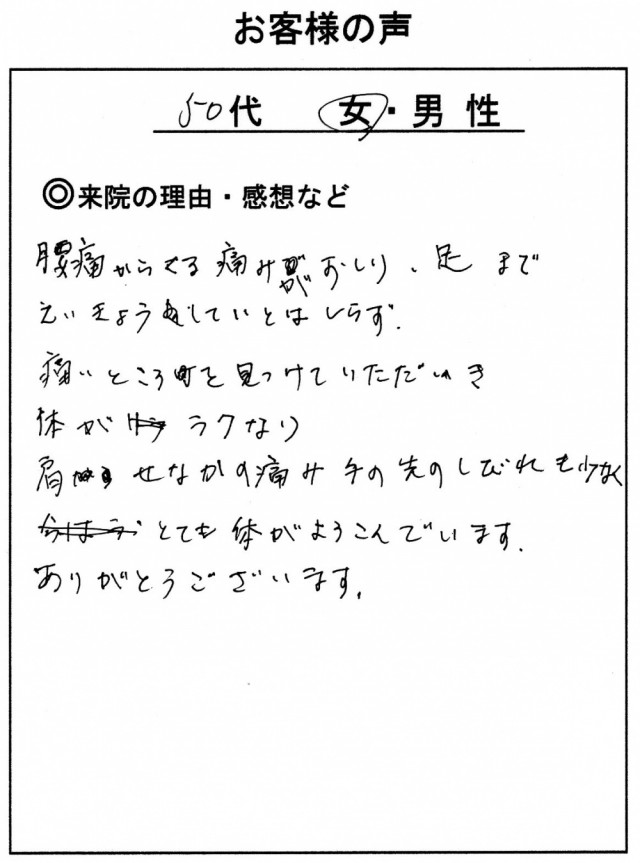 お客様の声
50代 女・男性
◎来院の理由・感想など
腰痛からくる痛みがおしり、足まで
えいきょうしていとはしらず.
痛いところを見つけていただいき
体が ラクなり
肩 せなかの痛み 手の先のしびれも少なく
とても体がよろこんでいます.
ありがとうございます.